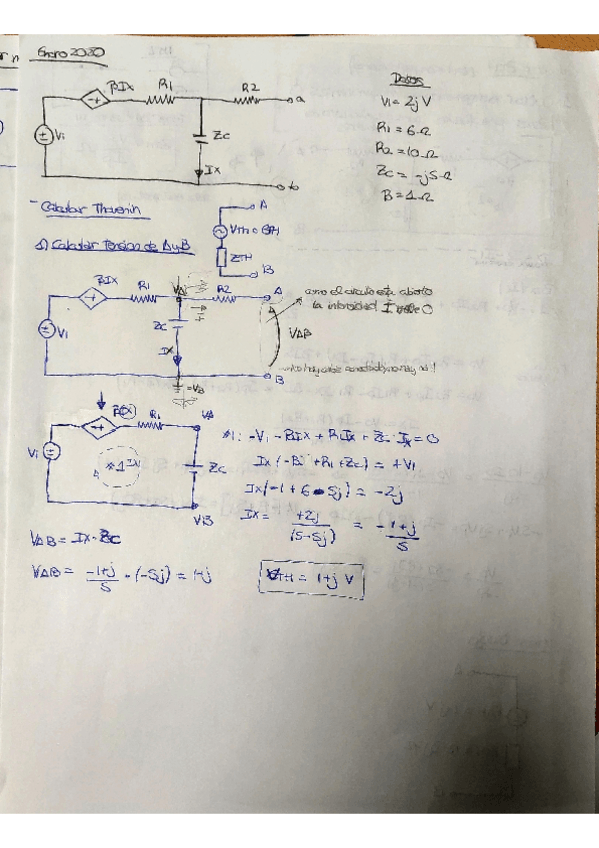 Enero 2020
BIx R1 R2 a
Vi
Zc
Ix
b
Datos
Vi = 2j V
R1 = 6 Ω
R2 = 10 Ω
Zc = -j5 Ω
B = 1 Ω
- Calcular Thevenin
A
Zth
B
1) Calcular Tension de A y B
BIx R1 VA R2 A
Vi
Zc
Ix
I
B
VAB
como el circuito esta abierto
la intensidad I vale 0
BIx R1 VA
Vi
#1 Ix
Zc
VB
#1: -Vi - BIx + R1Ix + Zc · Ix = 0
Ix (-B + R1 + Zc) = +Vi
Ix (-1 + 6 - 5j) = -2j
Ix = +2j / (5-5j) = -1+j / 5
VAB = Ix · Zc
VAB = -1+j / 5 · (-5j) = 1+j
VTH = 1+j V